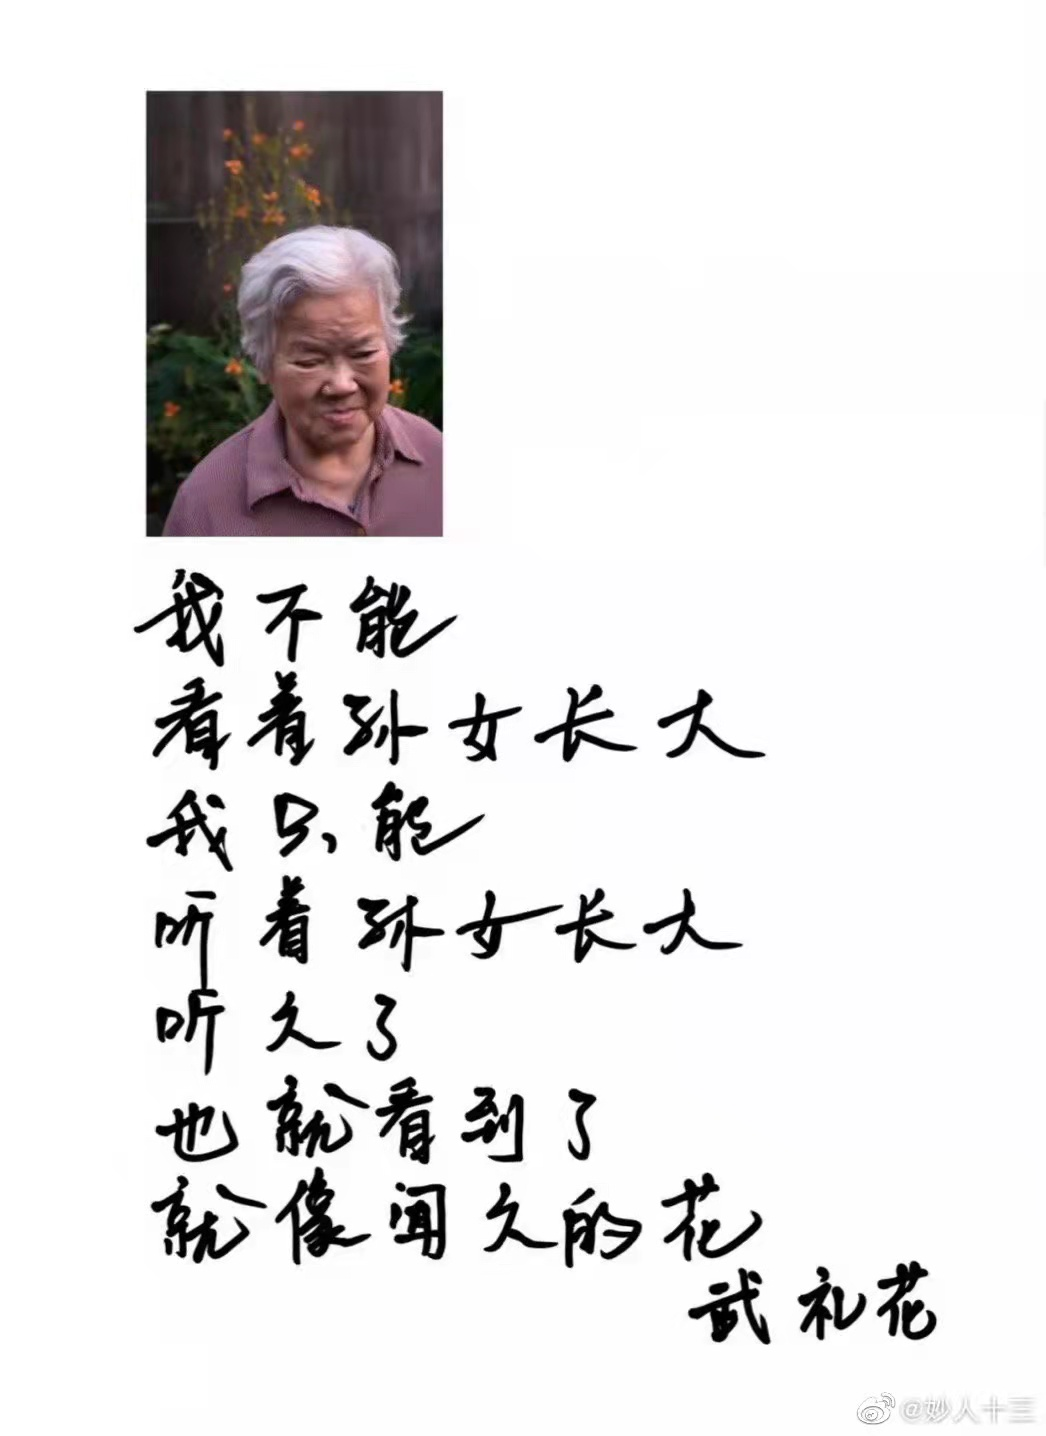 我不能
看着孙女长大
我只能
听着孙女长大
听久了
也就看到了
就像闻久的花
武礼花
@妙人十三